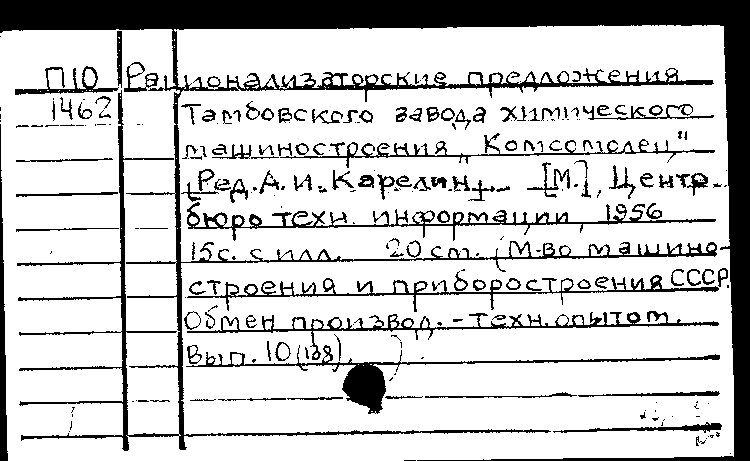 П10 Рационализаторские предложения
1462 Тамбовского завода химического
машиностроения „Комсомолец"
[Ред. А. И. Карелин]. [М.], Центр.
бюро техн. информации, 1956
15 с. с илл. 20 см. (М-во машино-
строения и приборостроения СССР.
Обмен производ.-техн. опытом.
Вып. 10(138).)